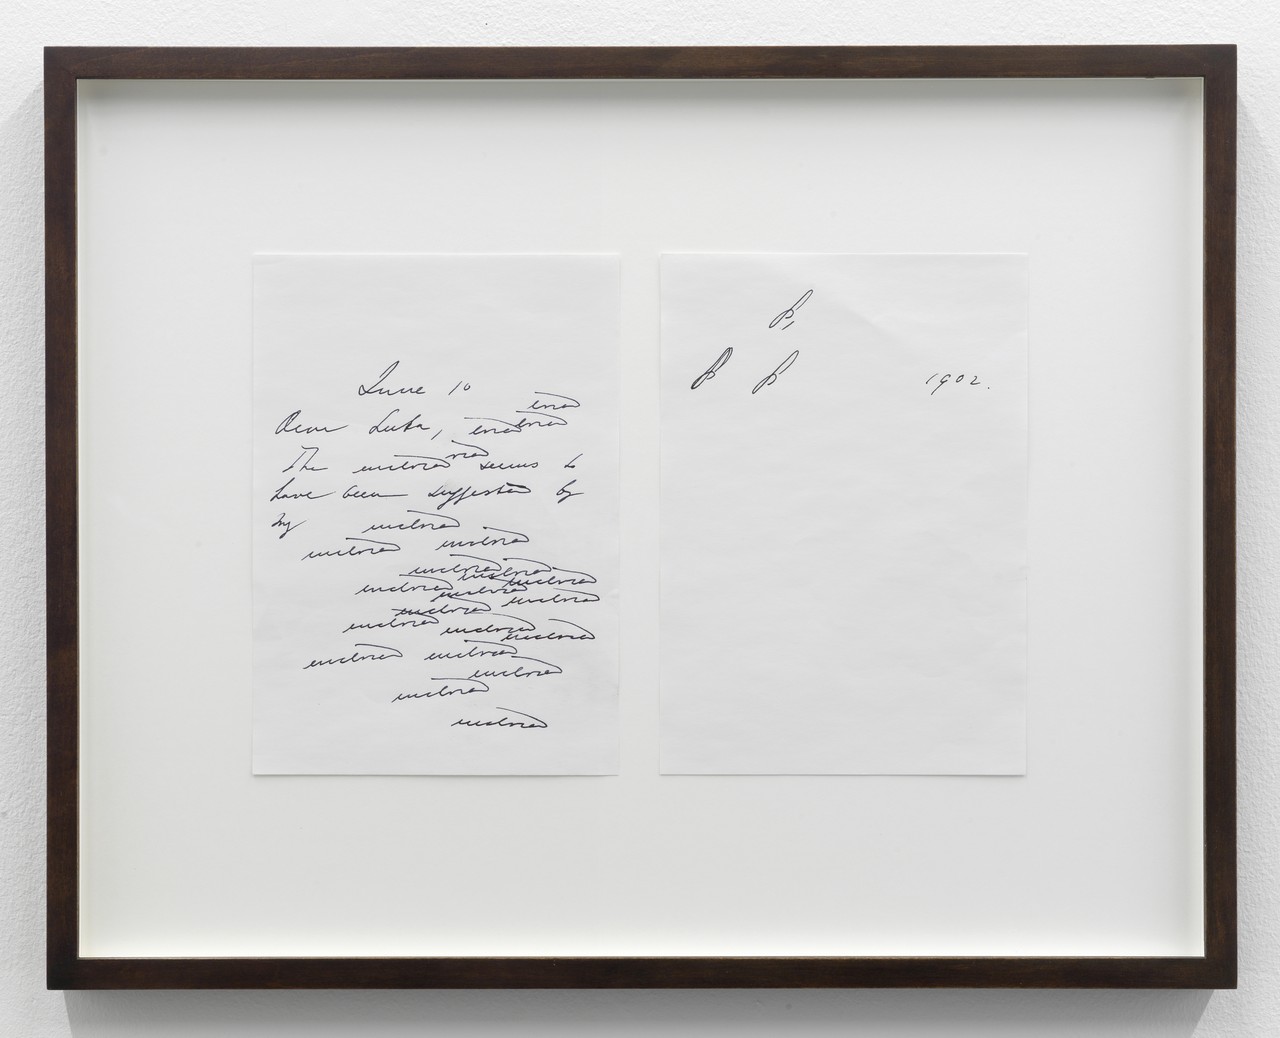 June 10
Dear Luka,
The enclosed seems to
have been suggested by
my enclosed
enclosed enclosed
enclosed enclosed
enclosed enclosed
enclosed enclosed enclosed
enclosed enclosed
enclosed enclosed
enclosed
enclosed enclosed
enclosed
enclosed
enclosed
B,
B B 1902.